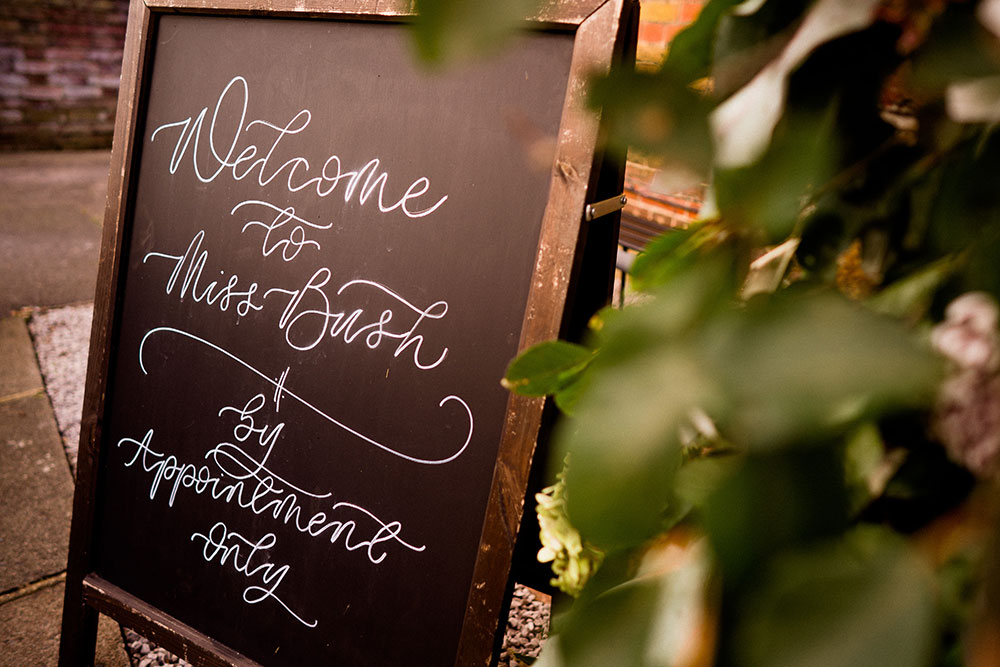 Welcome
to
Miss Bush
by
Appointment
Only